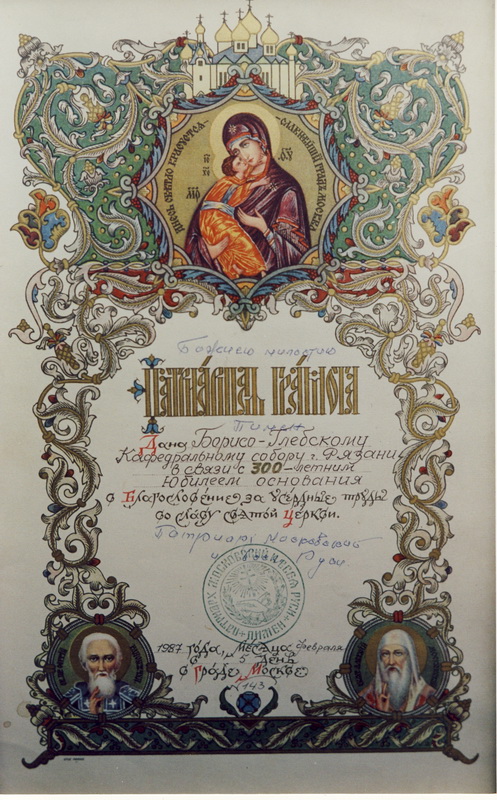 днесь светло красуется славнейший градъ москва
Божиею милостию
Патриаршая грамота
Пимен
Дана Борисо-Глебскому
Кафедральному собору г. Рязани
в связи с 300-летним
Юбилеем основания
в Благословение за усердные труды
во славу святой Церкви.
Патриарх Московский
и всея Руси
1987 года, месяца февраля
в 5 день
в граде Москве
№143